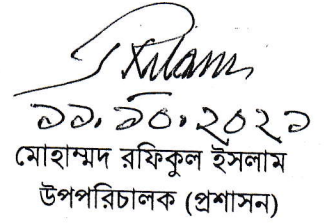 ১১.১০.২০২১
মোহাম্মদ রফিকুল ইসলাম
উপপরিচালক (প্রশাসন)